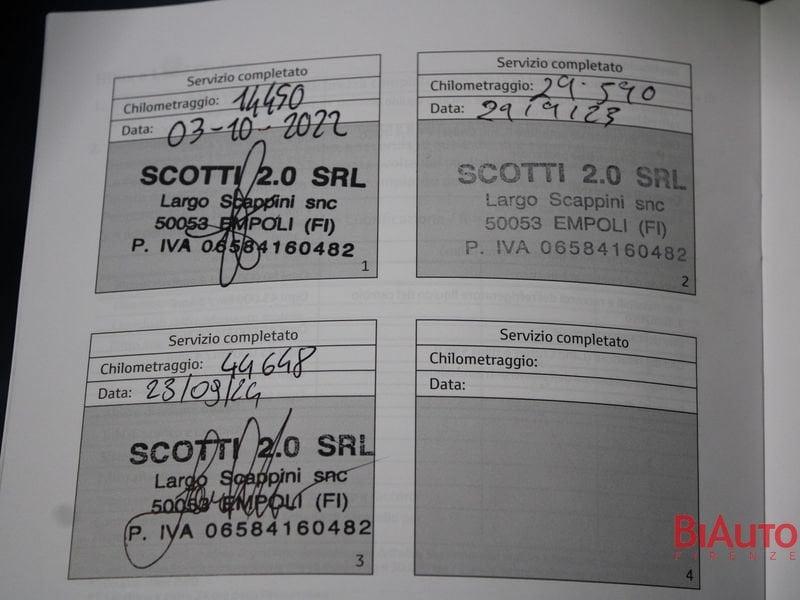 Servizio completato
Chilometraggio: 14450
Data: 03-10-2022
SCOTTI 2.0 SRL
Largo Scappini snc
50053 EMPOLI (FI)
P. IVA 06584160482
1
Servizio completato
Chilometraggio: 29.590
Data: 29/9/23
SCOTTI 2.0 SRL
Largo Scappini snc
50053 EMPOLI (FI)
P. IVA 06584160482
2
Servizio completato
Chilometraggio: 44648
Data: 23/09/24
SCOTTI 2.0 SRL
Largo Scappini snc
50053 EMPOLI (FI)
P. IVA 06584160482
3
Servizio completato
Chilometraggio:
Data:
4
BIAUTO
FIRENZE